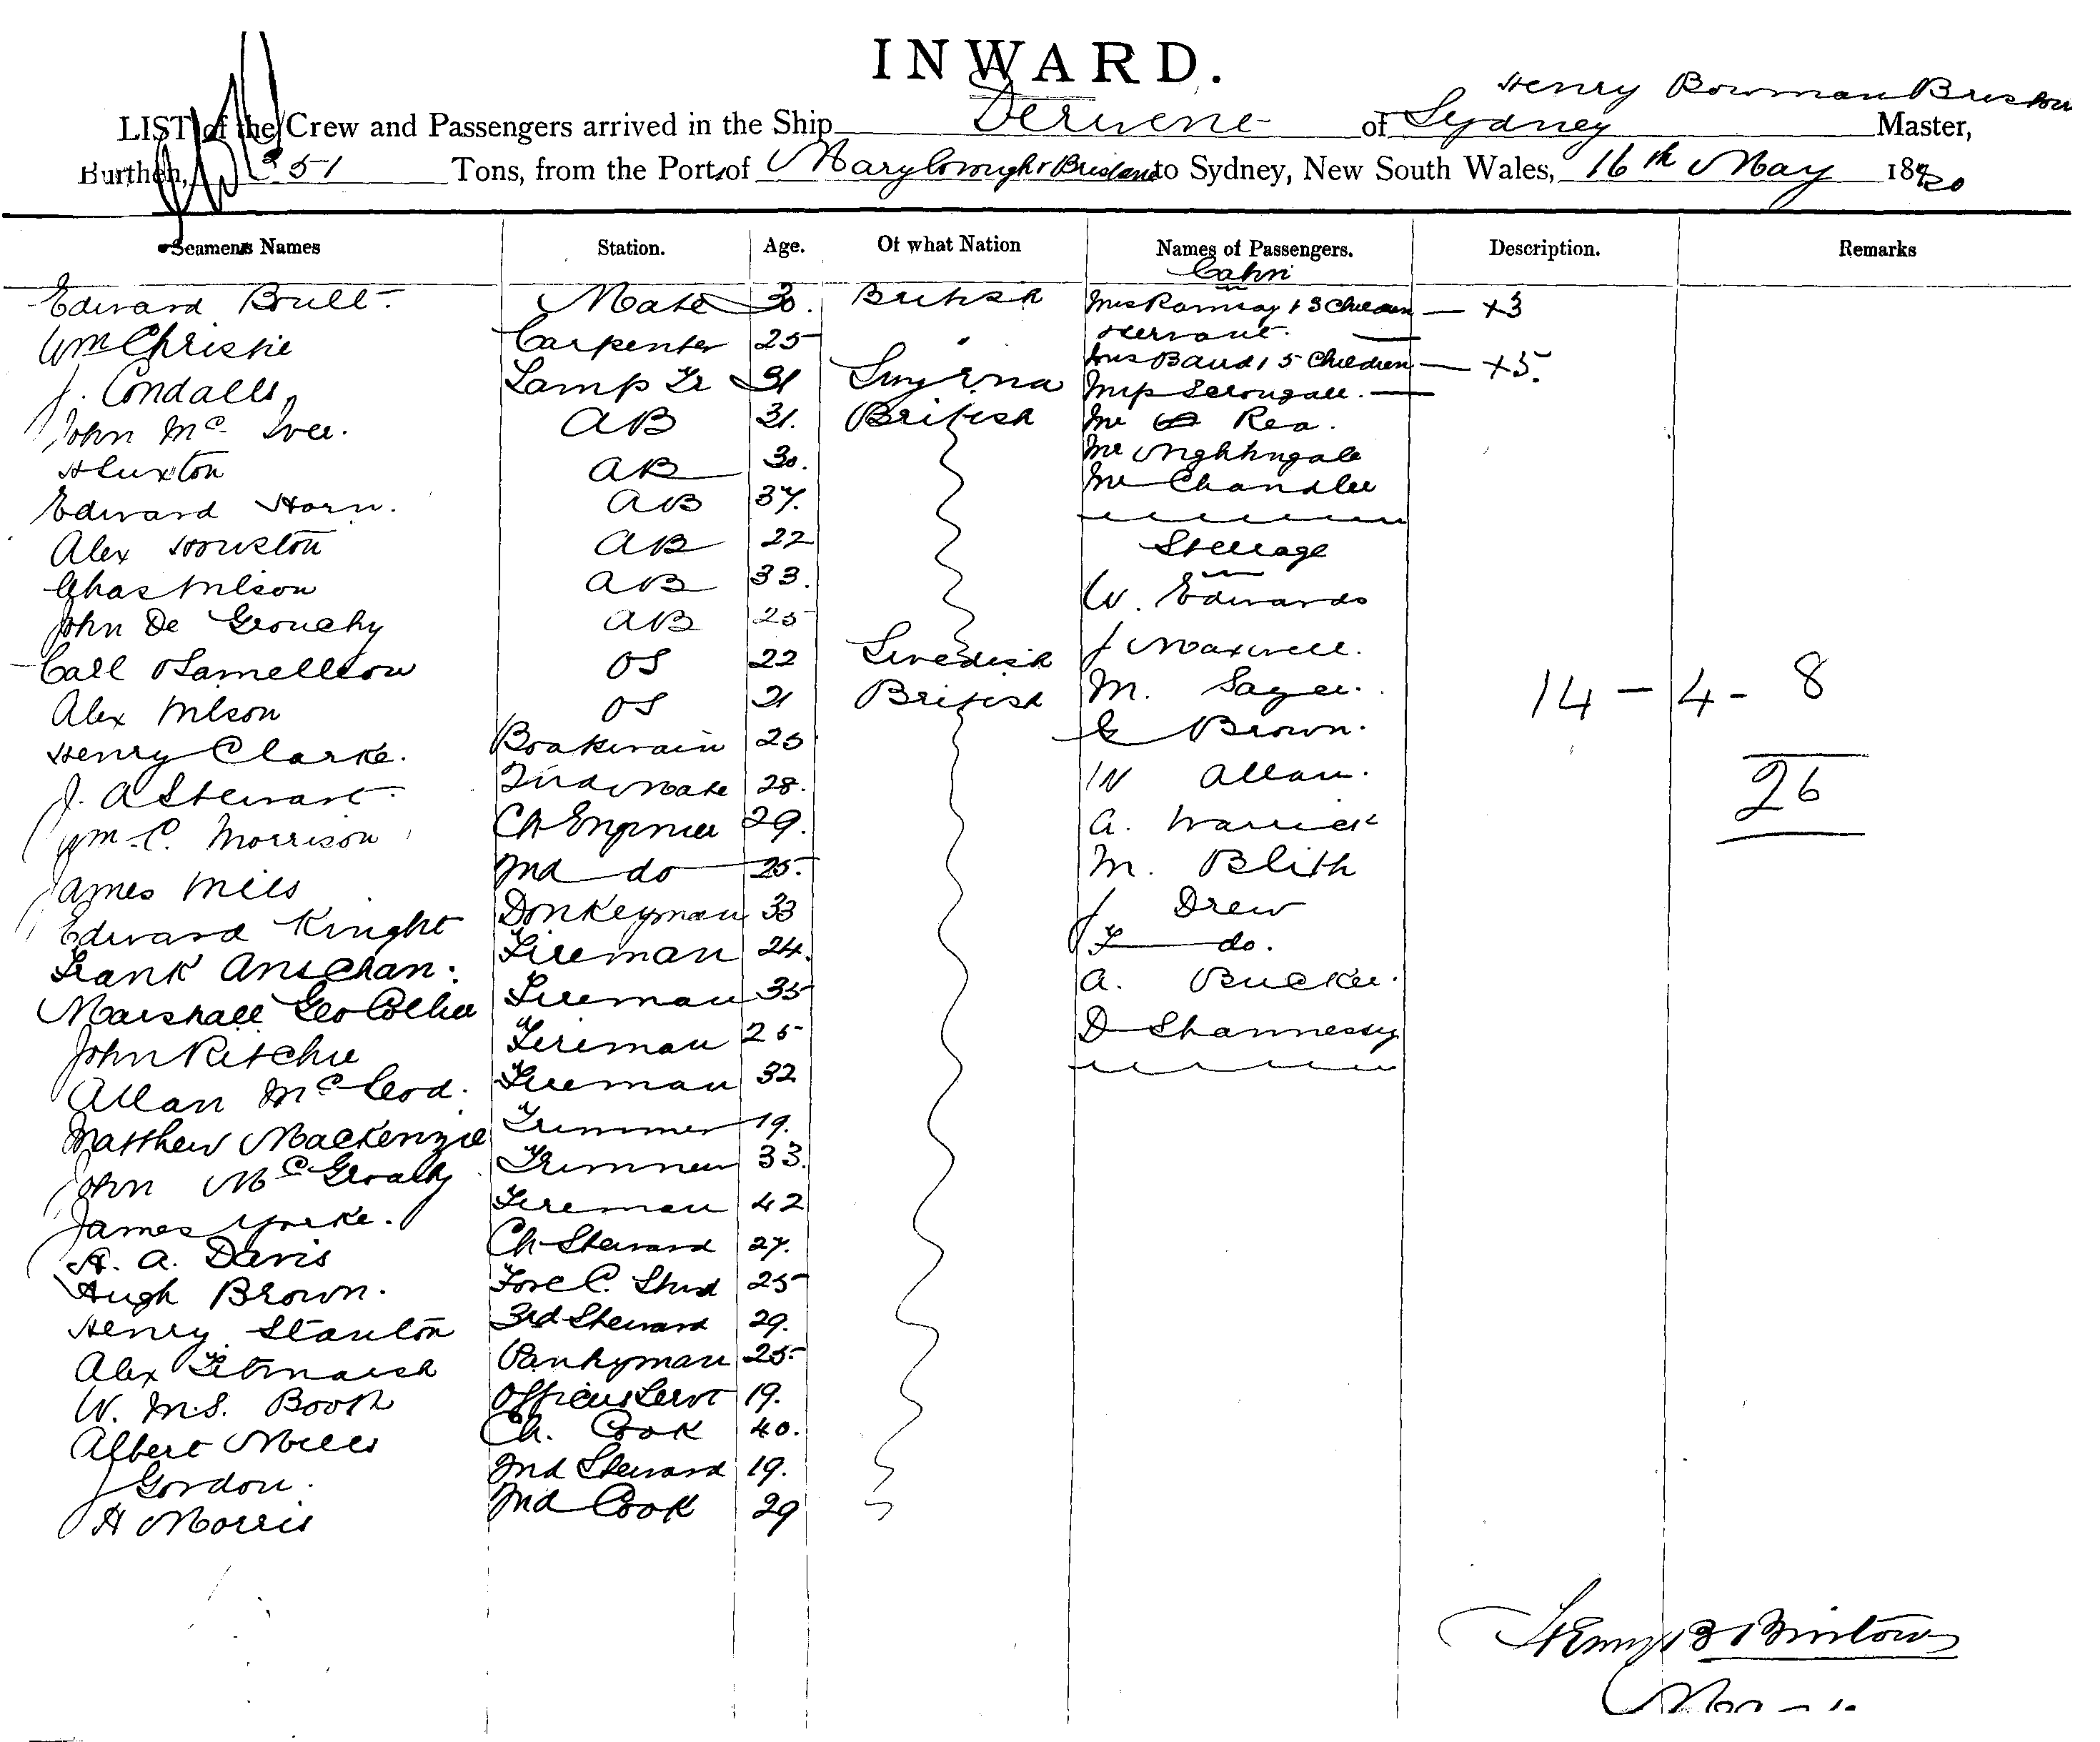 INWARD.
Henry Bowman
LIST of the Crew and Passengers arrived in the Ship of Sydney Master,
Burthen, 351 Tons, from the Ports of Maryborough & Brisbane to Sydney, New South Wales, 16th May 18
Seamens Names Station. Age. Of what Nation Names of Passengers. Description. Remarks
Cabin
Edward Mate 30. British Mrs Ramsay & 3 Children — +3
Servant.
Wm Christie Carpenter 25
Mrs Baud & 5 Children — +5.
J. Condalls Lamp Tr 31 Smyrna
John Mc 31. British Mr Rea.
AB
Huxton AB 30. Mr Nightingale
Edward Horn. AB 37. Mr Chandler
Alex Houston AB 22 Steerage
Chas Wilson AB 33. W. Edwards
John De Grouchy AB 25 J Maxwell.
OS 22 Swedish M. Sayer. 14 – 4 – 8
Alex Wilson OS 21 British Brown.
Henry Clarke. Boatswain 25 Allan. 26
J. A Stewart. Mate 28.
Wm C. Morrison Ch Engineer 29. A. Warrick
James Mills 2nd do 25. M. Blith
Edward Knight Donkeyman 33 J Drew
Frank Fireman 24. F do.
Marshall Geo Collier Fireman 35 A.
John Ritchie Fireman 25 D Shannessy
Allan McLeod. Fireman 32
Matthew Mackenzie Trimmer 19.
John Trimmer 33.
James Yorke. Fireman 42
A. A. Davis Ch Steward 27.
Hugh Brown. Fore C. Stwd 25
Henry Stanton 3rd Steward 29.
Alex Titmarsh Pantryman 25
W. M.S. Booth Officers Servt 19.
Albert Mills Ch. Cook 40.
J Gordon. 2nd Steward 19.
H Morris 2nd Cook 29
Henry B